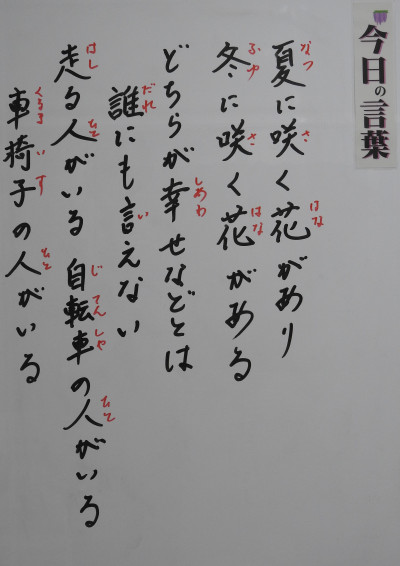 今日の言葉
夏に咲く花があり
冬に咲く花がある
どちらが幸せなどとは
誰にも言えない
走る人がいる 自転車の人がいる
車椅子の人がいる
なつ
さ
はな
ふゆ
さ
はな
しあわ
だれ
い
はし
ひと
じ
てん
しゃ
ひと
くるま
い
す
ひと